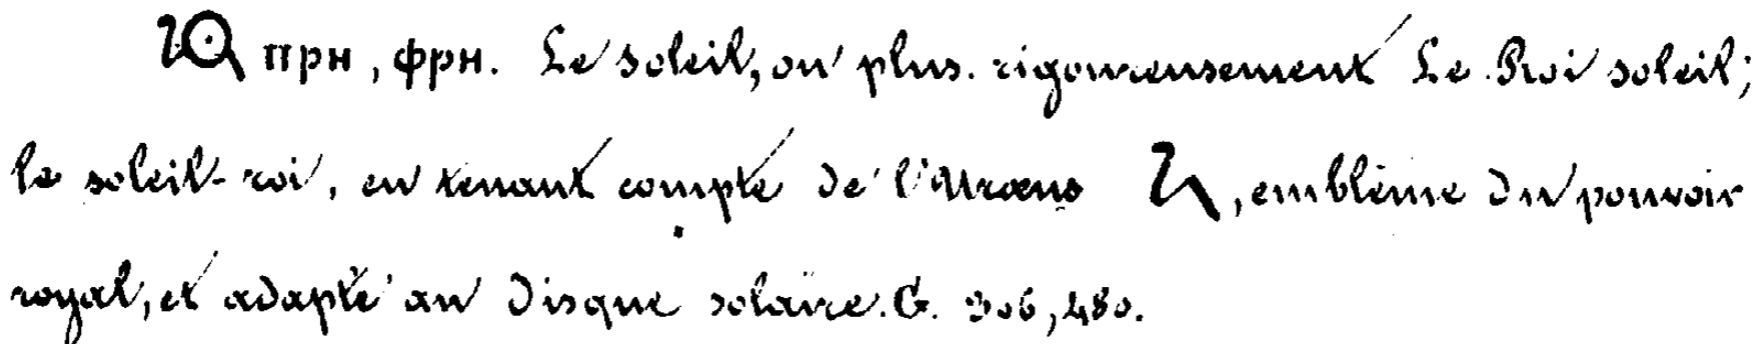 ⲡⲣⲏ, ⲫⲣⲏ. Le soleil, ou plus rigoureusement Le Roi soleil;
le soleil-roi, en tenant compte de l'Uræus, emblème du pouvoir
royal, et adapté au disque solaire. G. 306, 480.